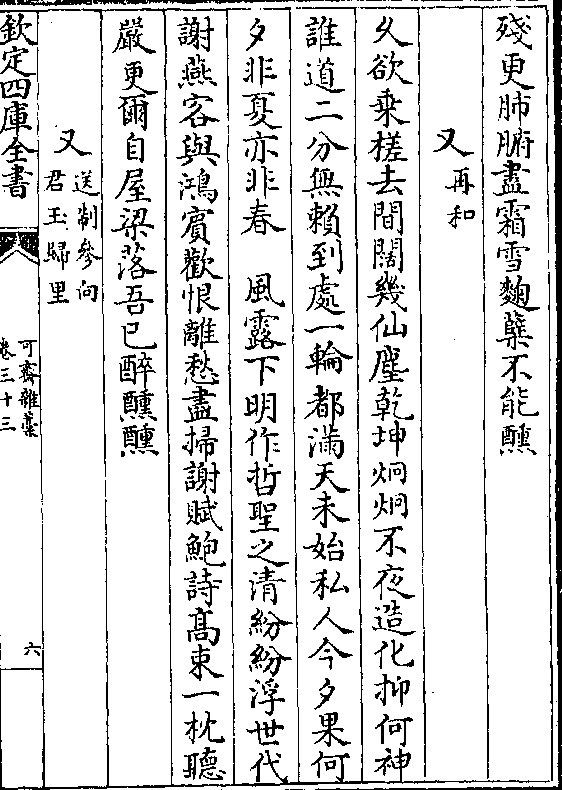 殘更肺腑盡霜雪麴蘖不能醺
又再和
久欲乗槎去間闊幾仙塵乾坤炯炯不夜造化抑何神
誰道二分無賴到處一輪都滿天未始私人今夕果何
夕非夏亦非春　風露下明作哲聖之清紛紛浮世代
謝燕客與鴻賓歡恨離愁盡掃謝賦鮑詩髙束一枕聽
嚴更爾自屋梁落吾已醉醺醺
又送制參向
君玉歸里
欽定四庫全書
可齋雜藁
卷三十三
六